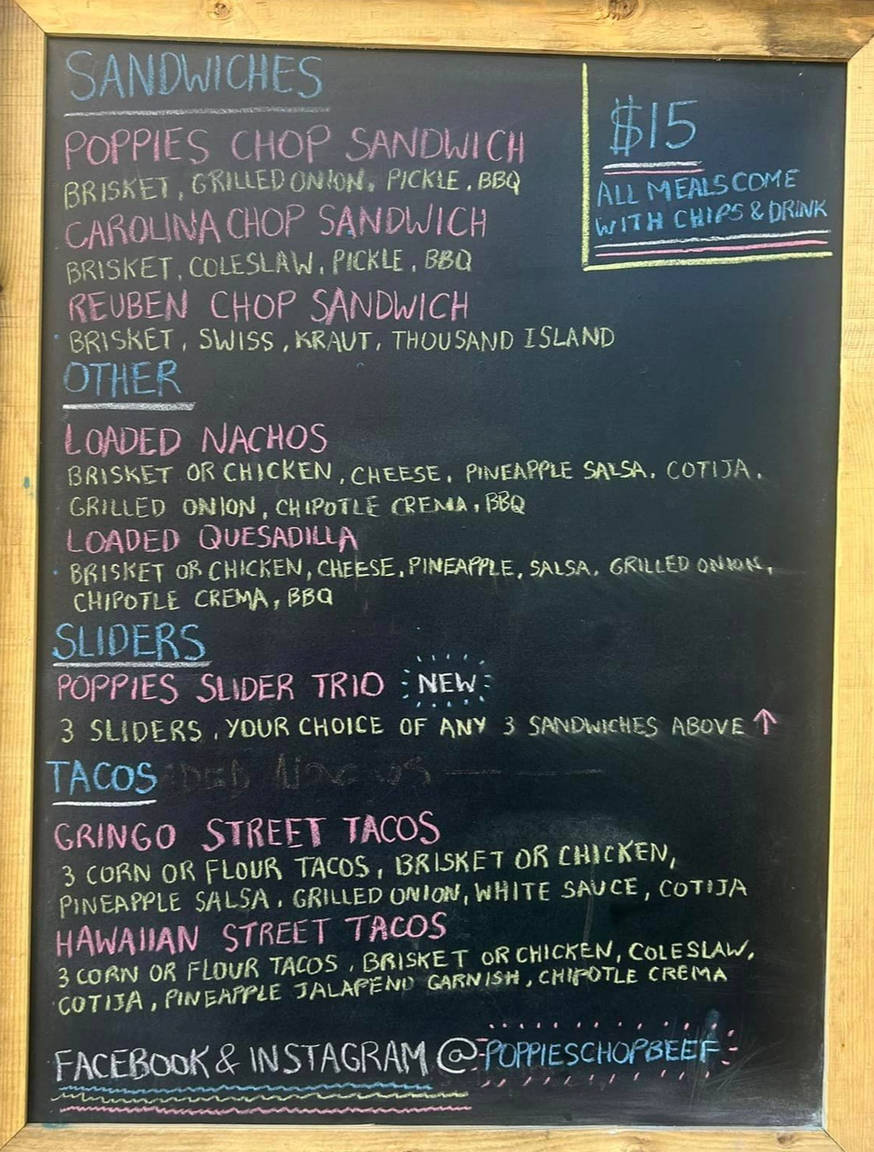 SANDWICHES
$15
ALL MEALS COME
WITH CHIPS & DRINK
POPPIES CHOP SANDWICH
BRISKET, GRILLED ONION, PICKLE, BBQ
CAROLINA CHOP SANDWICH
BRISKET, COLESLAW, PICKLE, BBQ
REUBEN CHOP SANDWICH
BRISKET, SWISS, KRAUT, THOUSAND ISLAND
OTHER
LOADED NACHOS
BRISKET OR CHICKEN, CHEESE, PINEAPPLE SALSA, COTIJA,
GRILLED ONION, CHIPOTLE CREMA, BBQ
LOADED QUESADILLA
BRISKET OR CHICKEN, CHEESE, PINEAPPLE, SALSA, GRILLED ONION,
CHIPOTLE CREMA, BBQ
SLIDERS
POPPIES SLIDER TRIO NEW
3 SLIDERS, YOUR CHOICE OF ANY 3 SANDWICHES ABOVE ↑
TACOS
GRINGO STREET TACOS
3 CORN OR FLOUR TACOS, BRISKET OR CHICKEN,
PINEAPPLE SALSA, GRILLED ONION, WHITE SAUCE, COTIJA
HAWAIIAN STREET TACOS
3 CORN OR FLOUR TACOS, BRISKET OR CHICKEN, COLESLAW,
COTIJA, PINEAPPLE JALAPENO GARNISH, CHIPOTLE CREMA
FACEBOOK & INSTAGRAM @POPPIESCHOPBEEF